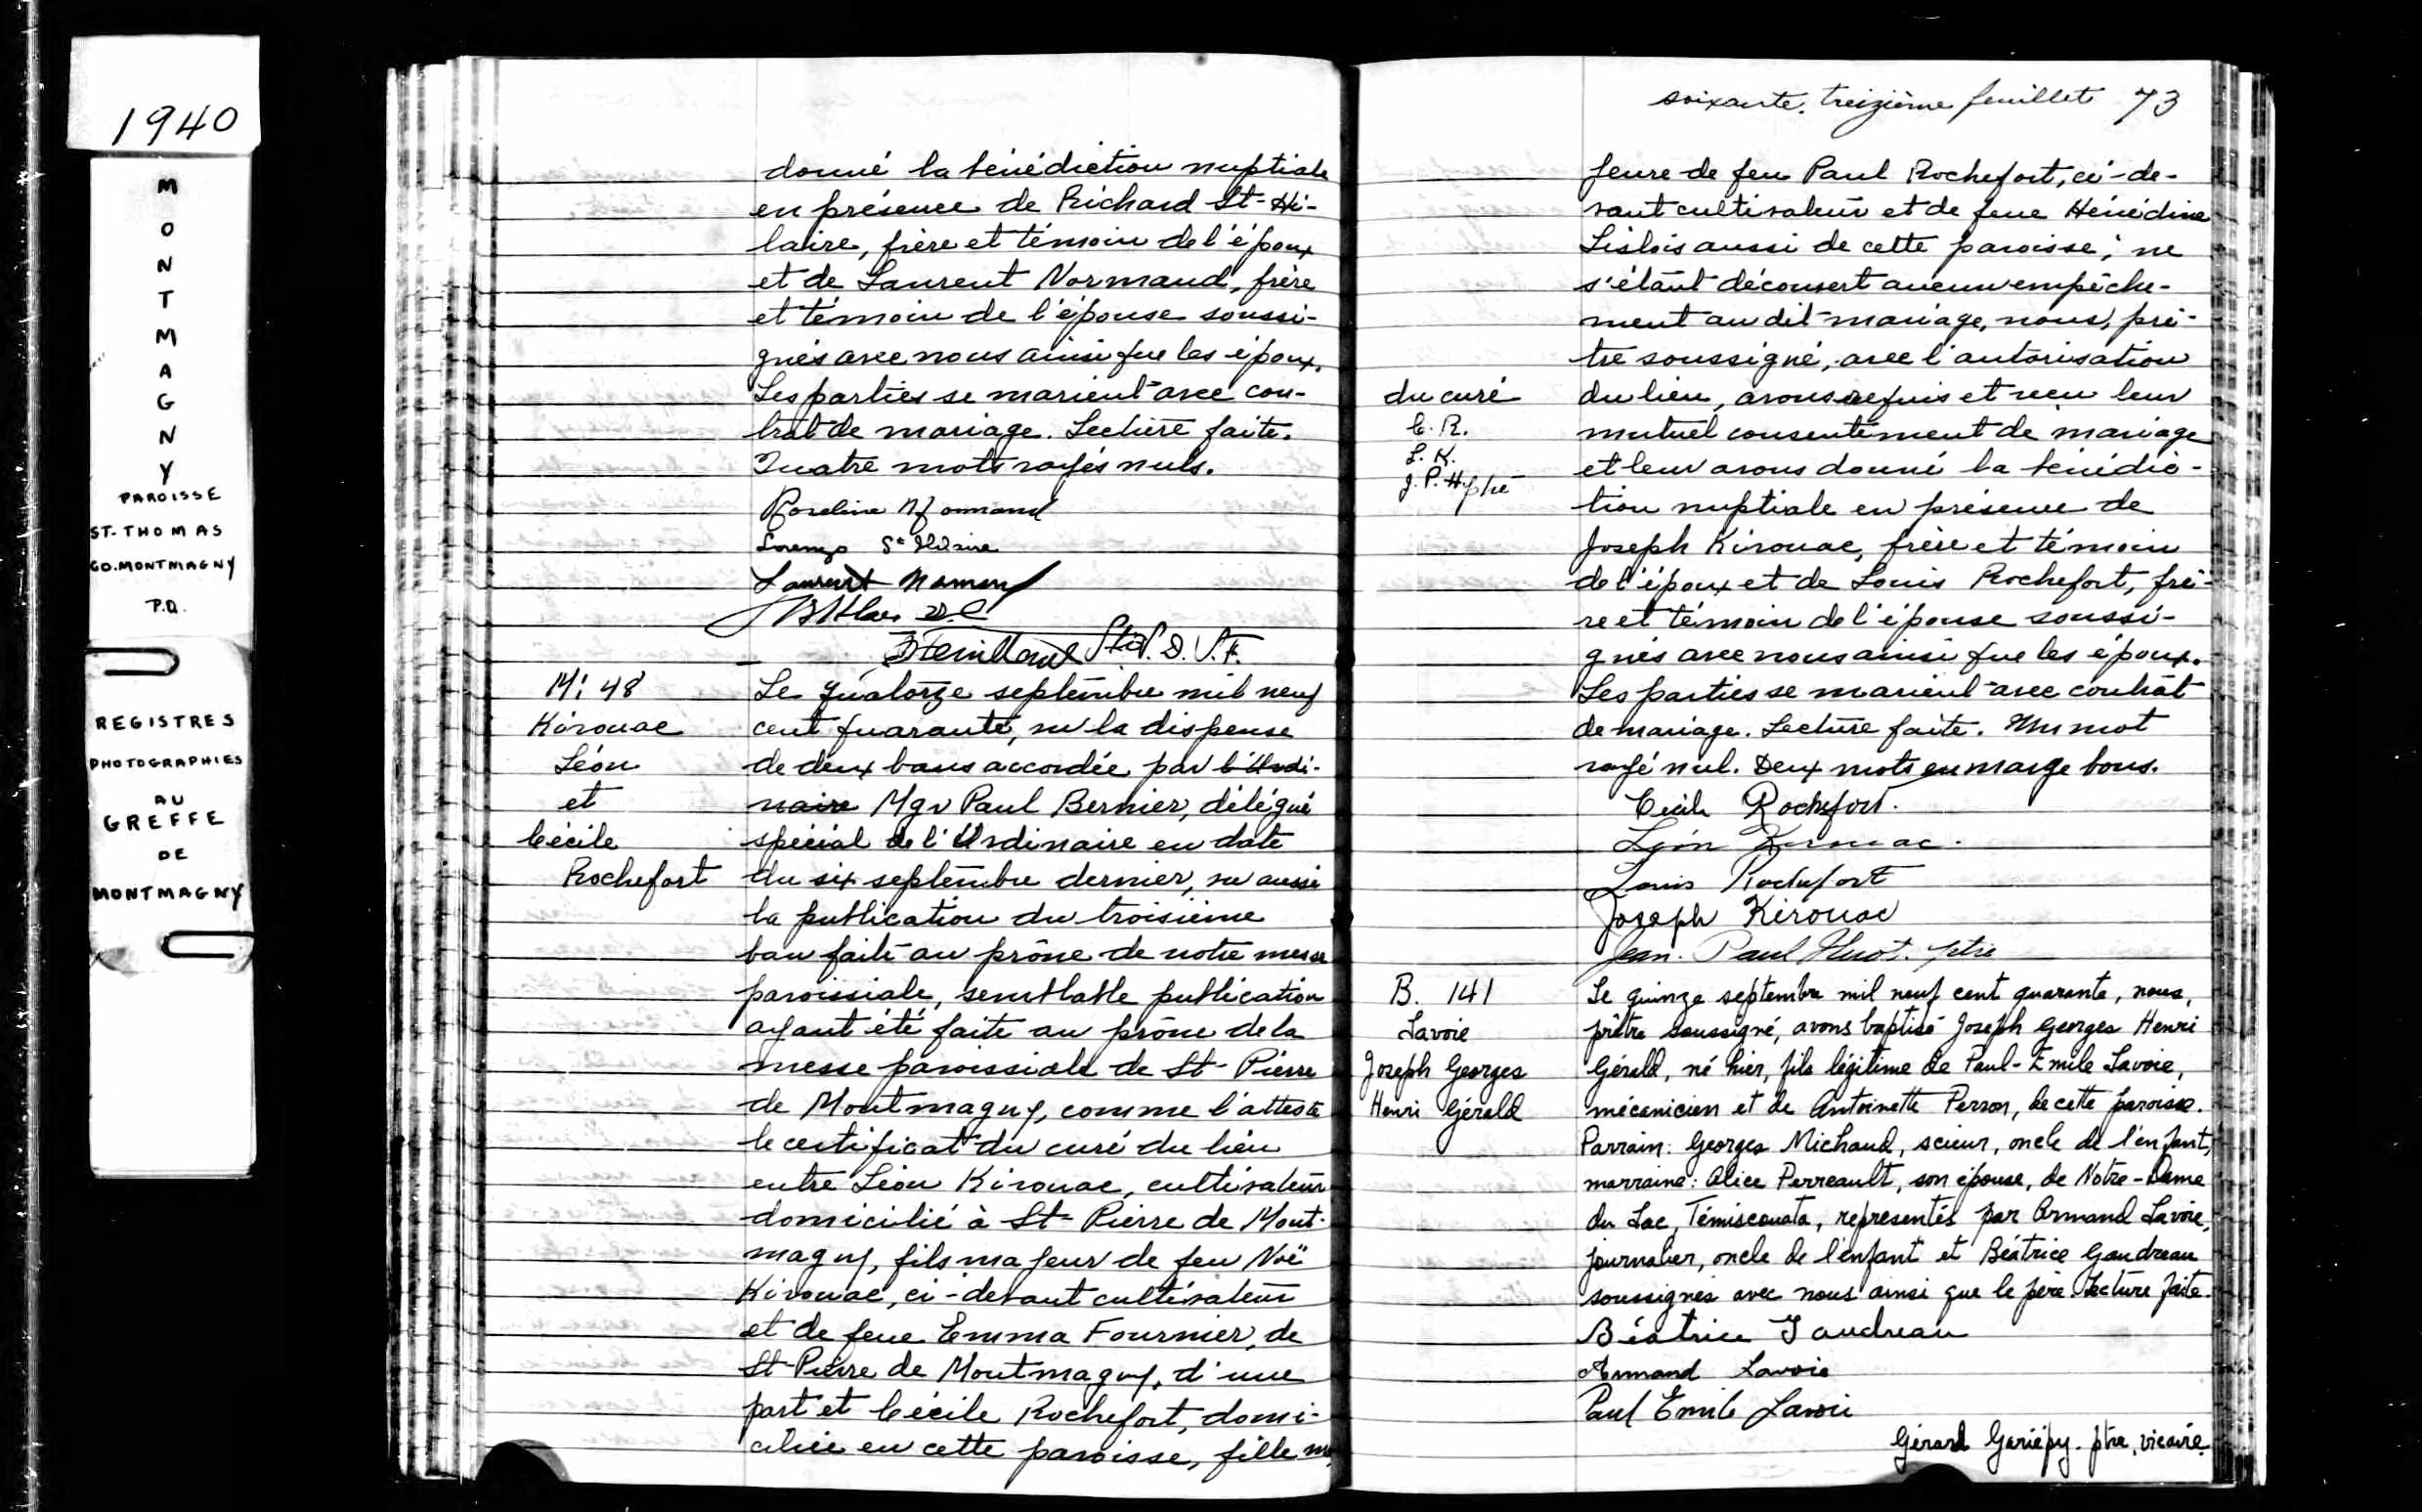 1940
M
O
N
T
M
A
G
N
Y
PAROISSE
ST-THOMAS
CO. MONTMAGNY
P.Q.
REGISTRES
PHOTOGRAPHIES
AU
GREFFE
DE
MONTMAGNY
donné la bénédiction nuptiale
en présence de Richard St-Hi-
laire, frère et témoin de l'époux
et de Laurent Normand, frère
et témoin de l'épouse soussi-
gnés avec nous ainsi que les époux.
Les parties se marient avec con-
trat de mariage. Lecture faite.
Quatre mots rayés nuls.
Roseline Normand
Lorenzo St Hilaire
Laurent Normand
M. 48
Kirouac
Léon
et
Cécile
Rochefort
Le quatorze septembre mil neuf
cent quarante, vu la dispense
de deux bans accordée par l'Ordi-
naire Mgr Paul Bernier, délégué
spécial de l'Ordinaire en date
du six septembre dernier, vu aussi
la publication du troisième
ban faite au prône de notre messe
paroissiale, semblable publication
ayant été faite au prône de la
messe paroissiale de St-Pierre
de Montmagny, comme l'atteste
le certificat du curé du lieu
entre Léon Kirouac, cultivateur
domicilié à St-Pierre de Mont-
magny, fils majeur de feu Noë
Kirouac, ci-devant cultivateur
et de feue Emma Fournier, de
St-Pierre de Montmagny, d'une
part et Cécile Rochefort, domi-
ciliée en cette paroisse, fille ma
soixante-treizième feuillet 73
jeure de feu Paul Rochefort, ci-de-
vant cultivateur et de feue Hénédine
Lislois aussi de cette paroisse; ne
s'étant découvert aucun empêche-
ment au dit mariage, nous, prê-
tre soussigné, avec l'autorisation
du curé
C. R.
L. K.
J. P. H. ptre
du lieu, avons requis et reçu leur
mutuel consentement de mariage
et leur avons donné la bénédic-
tion nuptiale en présence de
Joseph Kirouac, frère et témoin
de l'époux et de Louis Rochefort, frè-
re et témoin de l'épouse soussi-
gnés avec nous ainsi que les époux.
Les parties se marient avec contrat
de mariage. Lecture faite. Un mot
rayé nul. Deux mots en marge bons.
Cécile Rochefort.
Léon Kirouac.
Louis Rochefort
Joseph Kérouac
Jean-Paul Huot. ptre
B. 141
Lavoie
Joseph Georges
Henri Gérald
Le quinze septembre mil neuf cent quarante, nous,
prêtre soussigné, avons baptisé Joseph Georges Henri
Gérald, né hier, fils légitime de Paul-Emile Lavoie,
mécanicien et de Antoinette Perron, de cette paroisse.
Parrain: Georges Michaud, scieur, oncle de l'enfant,
marraine: Alice Perreault, son épouse, de Notre-Dame
du Lac, Témiscouata, représentés par Armand Lavoie,
journalier, oncle de l'enfant et Béatrice Gaudreau
soussignés avec nous ainsi que le père. Lecture faite.
Béatrice Gaudreau
Armand Lavoie
Paul Emile Lavoie
Gérard Gariépy. ptre, vicaire.